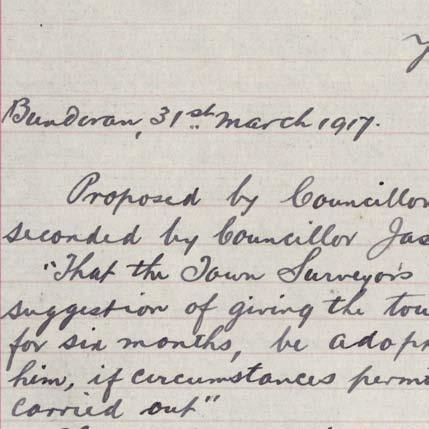 Bundoran, 31st March 1917.
Proposed by Councillor
seconded by Councillor Jas
"That the Town Surveyors
suggestion of giving the tow
for six months, be adop
him, if circumstances permi
carried out"